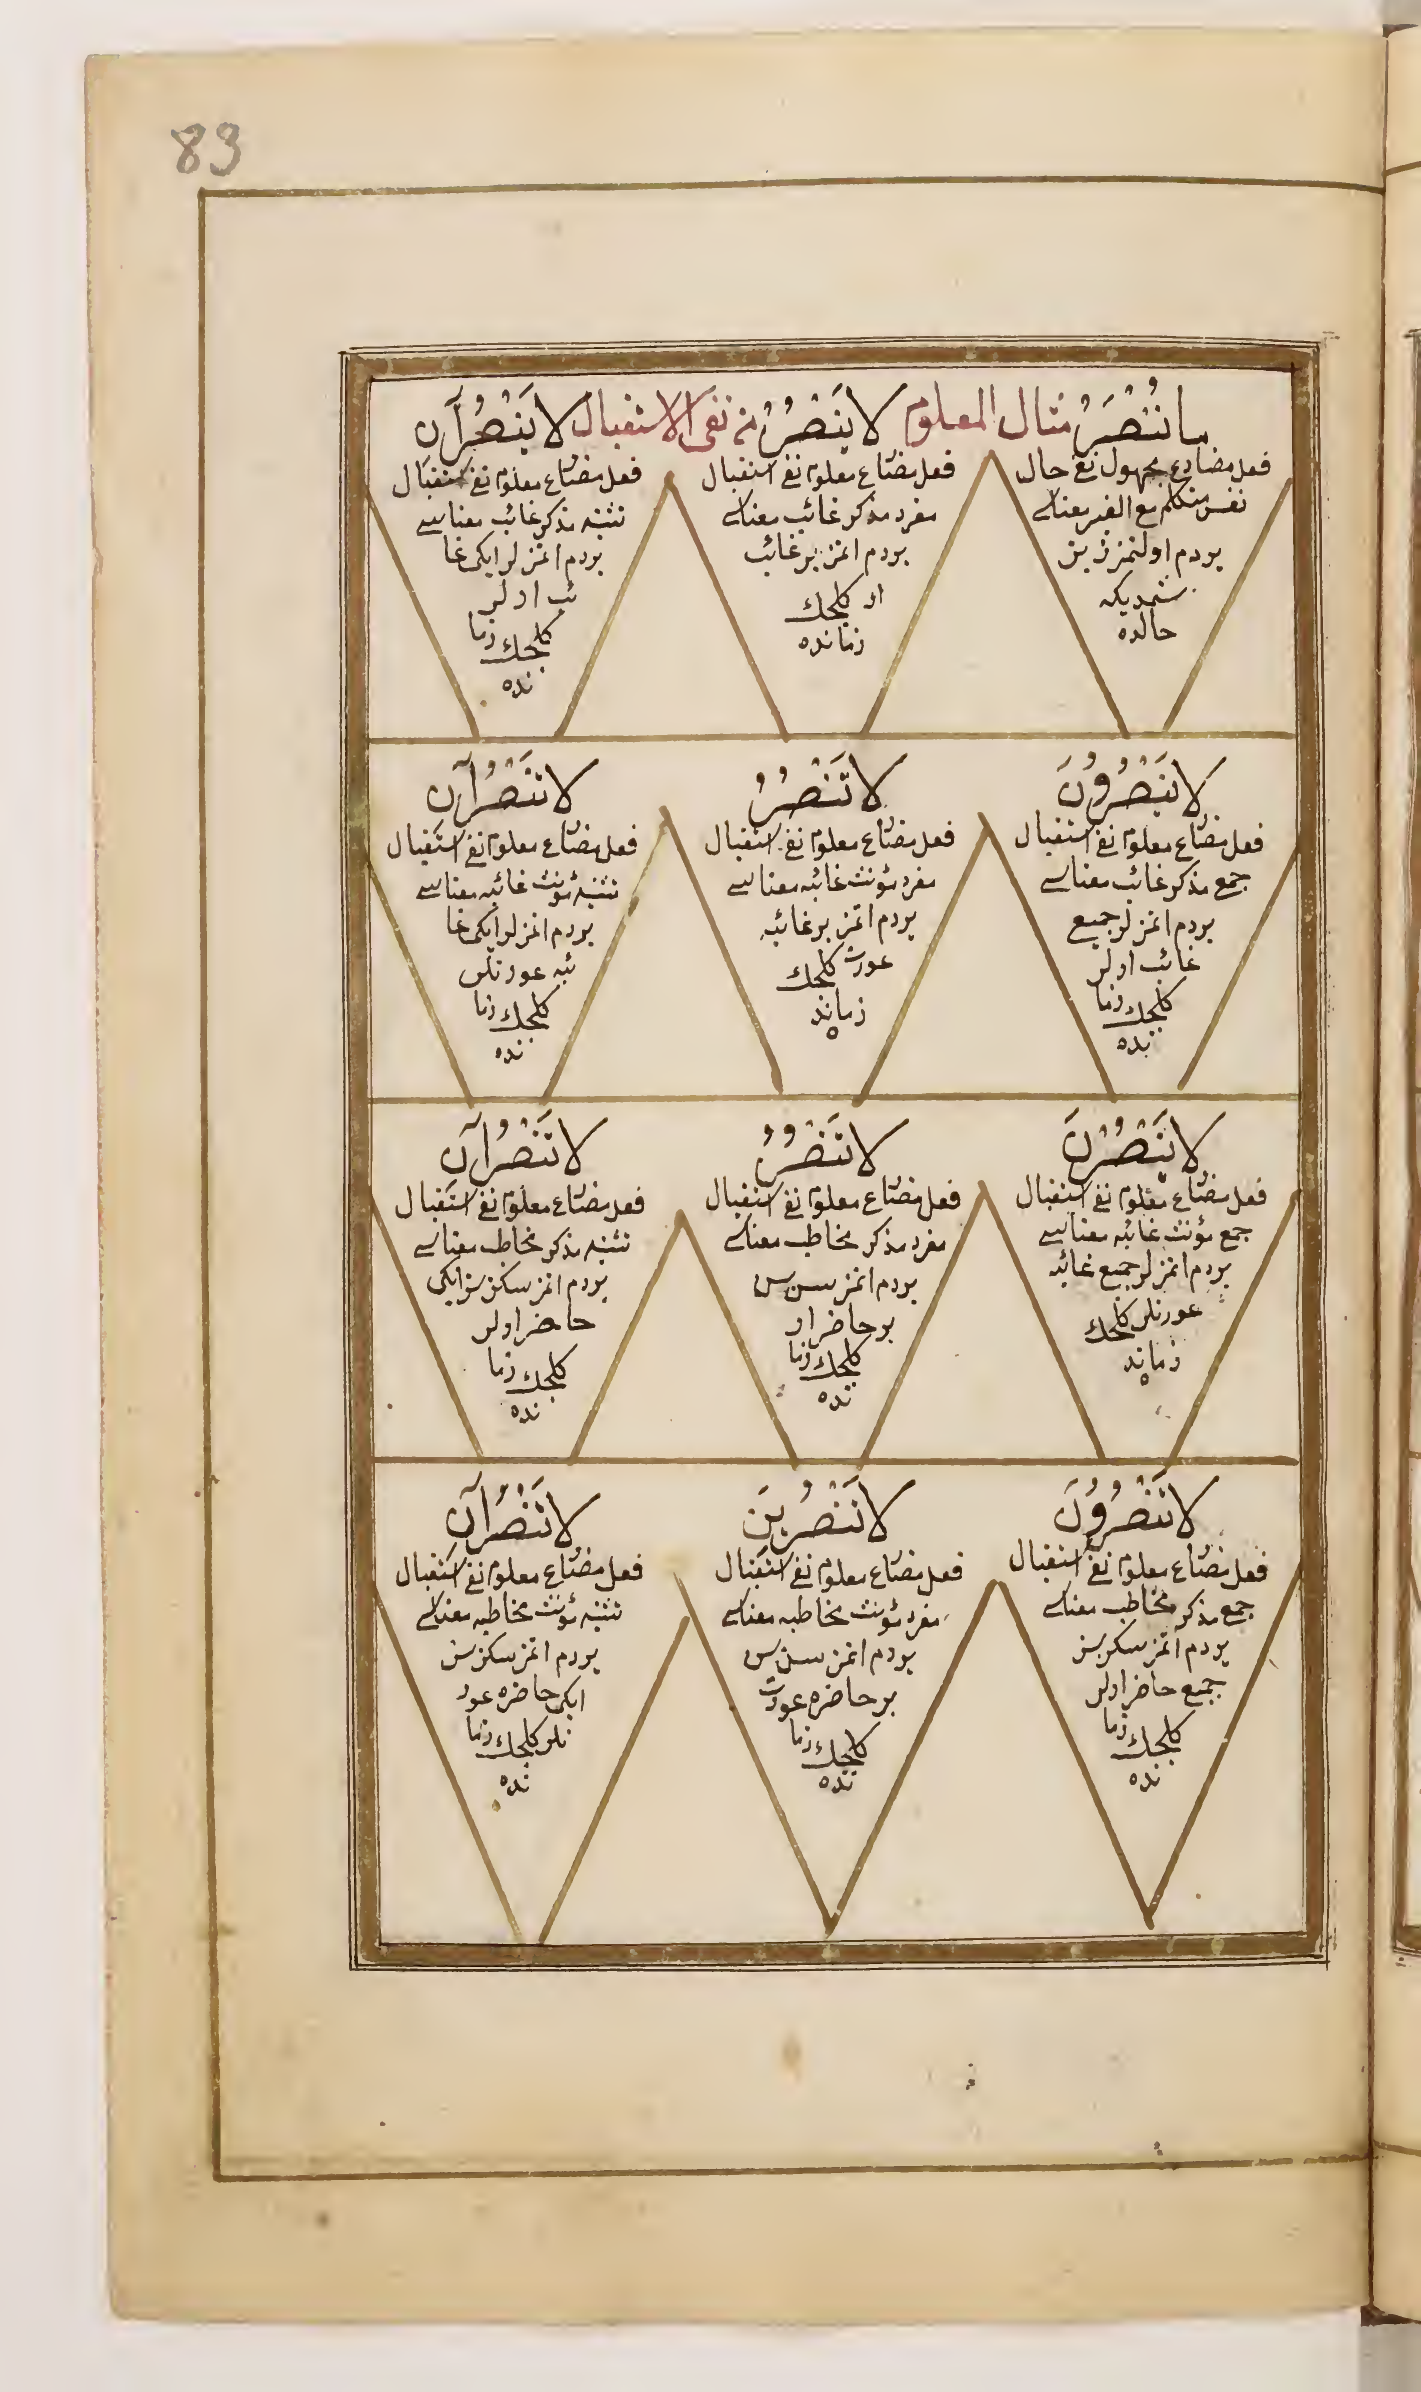 83
مَا نُنْصَرُ مثال المعلوم لَا يَنْصُرُ من نفى الاستقبال لَا يَنْصُرَانِ
فعل مضارع مجهول نفى حال
نفس متكلم مع الغير معناسى
يردم اولنمز ز بز
شمديكه
حالده
فعل مضارع معلوم نفى استقبال
مفرد مذكر غائب معناسى
يردم اتمز بر غائب
ار كلجك
زمانده
فعل مضارع معلوم نفى استقبال
تثنيه مذكر غائب معناسى
يردم اتمزلر ايكى غا
ئب ارلر
كلجك زما
نده
لَا يَنْصُرُونَ
فعل مضارع معلوم نفى استقبال
جمع مذكر غائب معناسى
يردم اتمزلر جميع
غائب ارلر
كلجك زما
نده
لَا تَنْصُرُ
فعل مضارع معلوم نفى استقبال
مفرد مؤنث غائبه معناسى
يردم اتمز بر غائبه
عورت كلجك
زمانده
لَا تَنْصُرَانِ
فعل مضارع معلوم نفى استقبال
تثنيه مؤنث غائبه معناسى
يردم اتمزلر ايكى غا
ئبه عورتلر
كلجك زما
نده
لَا يَنْصُرْنَ
فعل مضارع معلوم نفى استقبال
جمع مؤنث غائبه معناسى
يردم اتمزلر جميع غائبه
عورتلر كلجك
زمانده
لَا تَنْصُرُ
فعل مضارع معلوم نفى استقبال
مفرد مذكر مخاطب معناسى
يردم اتمز سن سن
بر حاضر ار
كلجك زما
نده
لَا تَنْصُرَانِ
فعل مضارع معلوم نفى استقبال
تثنيه مذكر مخاطب معناسى
يردم اتمز سكز سز ايكى
حاضر ارلر
كلجك زما
نده
لَا تَنْصُرُونَ
فعل مضارع معلوم نفى استقبال
جمع مذكر مخاطب معناسى
يردم اتمز سكز سز
جميع حاضر ارلر
كلجك زما
نده
لَا تَنْصُرِينَ
فعل مضارع معلوم نفى استقبال
مفرد مؤنث مخاطبه معناسى
يردم اتمز سن سن
بر حاضره عورت
كلجك زما
نده
لَا تَنْصُرَانِ
فعل مضارع معلوم نفى استقبال
تثنيه مؤنث مخاطبه معناسى
يردم اتمز سكز سز
ايكى حاضره عور
تلر كلجك زما
نده